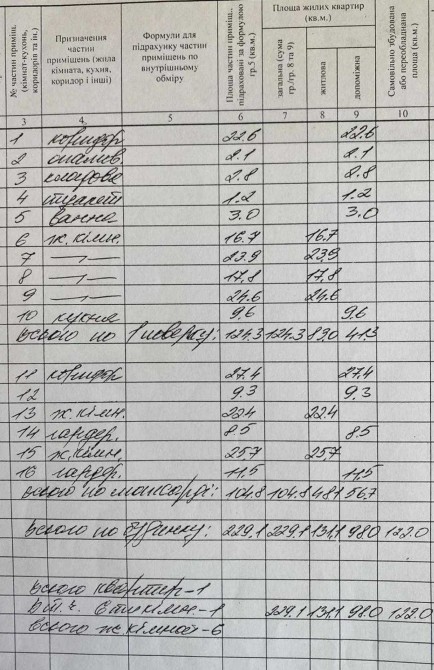 № частин приміщ. (кімнат-кухонь, коридорів та ін.)
Призначення частин приміщень (жила кімната, кухня, коридор і інші)
Формули для підрахунку частин приміщень по внутрішньому обміру
Площа частин приміщ., підраховані за формулою гр.5 (кв.м.)
Площа жилих квартир (кв.м.)
загальна (сума гр./гр. 8 та 9)
житлова
допоміжна
Самовільно збудована або переобладнана площа (кв.м.)
3 4 5 6 7 8 9 10
1 коридор 22.6 22.6
2 опалюв. 2.1 2.1
3 кладова 2.8 2.8
4 туалет 1.2 1.2
5 ванна 3.0 3.0
6 ж.кімн. 16.7 16.7
7 —〃— 23.9 23.9
8 —〃— 17,8 17,8
9 —〃— 24.6 24.6
10 кухня 9.6 9.6
Всього по 1 поверху: 124.3 124.3 83.0 41.3
11 коридор 27.4 27.4
12 9.3 9.3
13 ж.кімн. 22.4 22.4
14 гардер. 8.5 8.5
15 ж.кімн. 25.7 25.7
16 гардер. 11,5 11,5
Всього по мансарді: 104.8 104.8 48.1 56.7
Всього по будинку: 229.1 229.1 131,1 98.0 122.0
Всього квартир-1
В т.ч. 6тикімн-1 229.1 131,1 98.0 122.0
Всього ж.кімнат-6